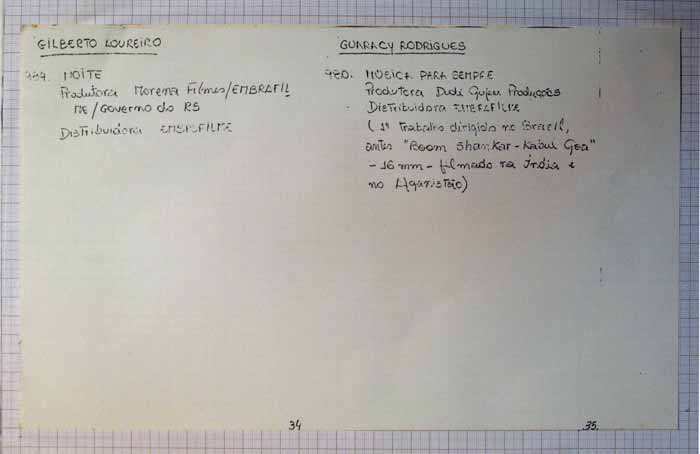 GILBERTO LOUREIRO
984. NOITE
Produtora Morena Filmes/EMBRAFIL
ME/Governo do RS
Distribuidora EMBRAFILME
34
GUARACY RODRIGUES
980. MÚSICA PARA SEMPRE
Produtora Dudi Produções
Distribuidora EMBRAFILME
(1º trabalho dirigido no Brasil,
antes "Boom Shankar - Kabul Goa"
- 16 mm - filmado na Índia e
no Afganistão)
35.